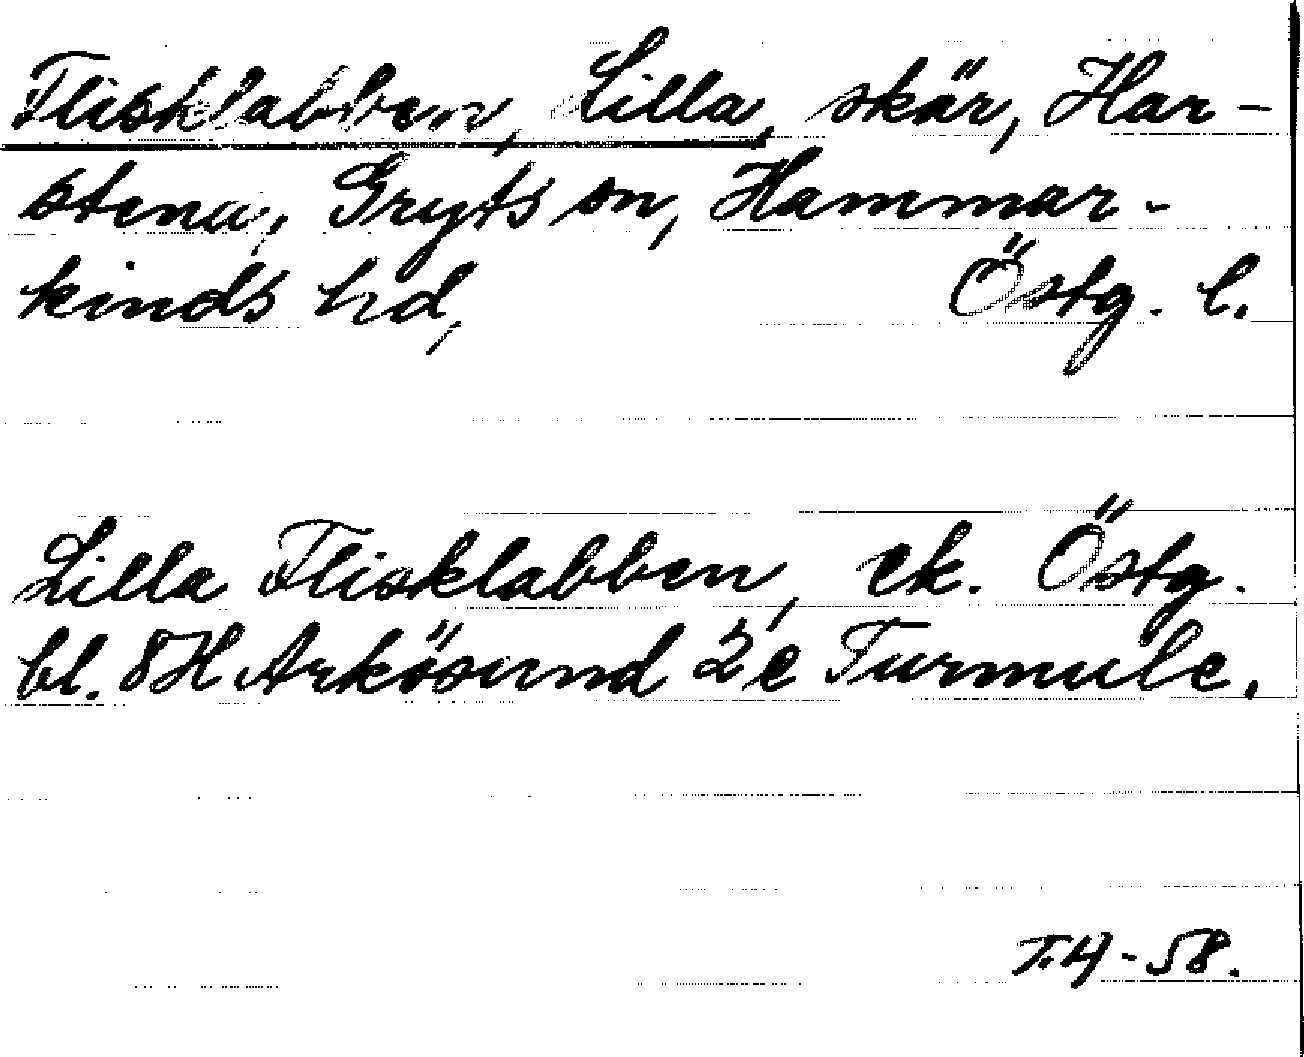 Flisklabben, Lilla, skär, Har-
stena, Gryts sn, Hammar-
kinds hd, Östg. l.
Lilla Flisklabben, ek. Östg.
bl. 8H Arkösund 2 e Furmule.
T.H-58.